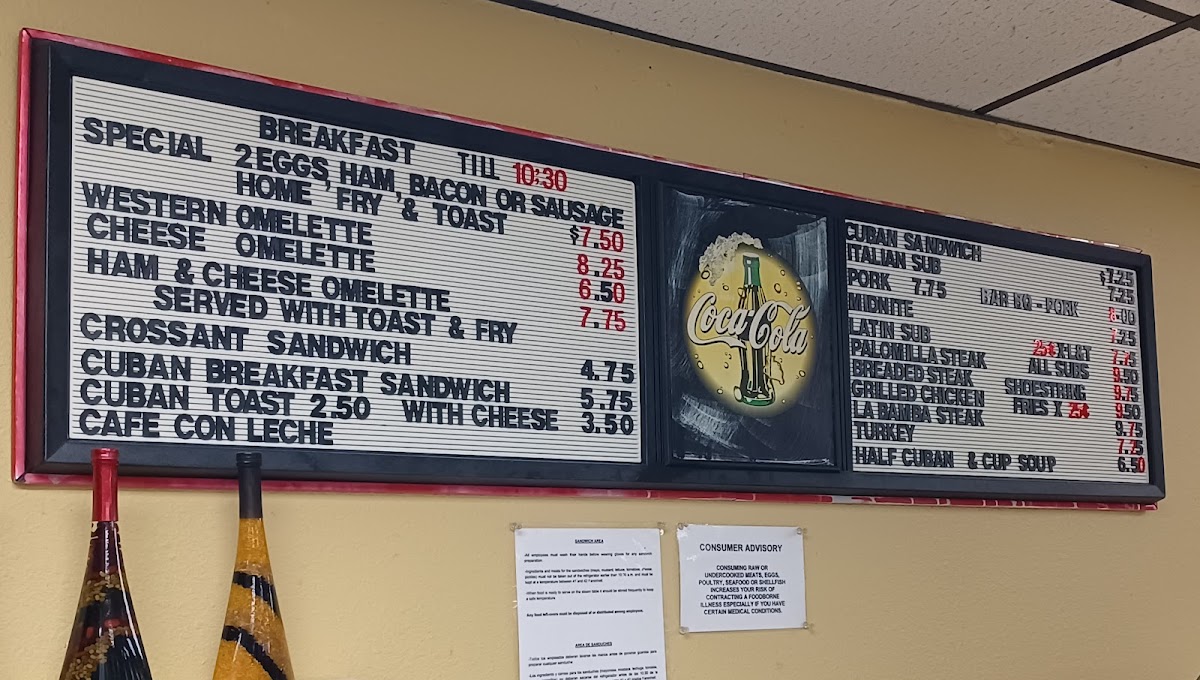 BREAKFAST TILL 10:30
SPECIAL 2 EGGS, HAM, BACON OR SAUSAGE
HOME FRY & TOAST $7.50
WESTERN OMELETTE 8.25
CHEESE OMELETTE 6.50
HAM & CHEESE OMELETTE 7.75
SERVED WITH TOAST & FRY
CROSSANT SANDWICH 4.75
CUBAN BREAKFAST SANDWICH 5.75
CUBAN TOAST 2.50 WITH CHEESE 3.50
CAFE CON LECHE
Coca-Cola
CUBAN SANDWICH $7.25
ITALIAN SUB 7.25
PORK 7.75 BAR BQ--PORK 8.00
MIDNITE 7.25
LATIN SUB 25¢ X L&T 7.75
PALOMILLA STEAK ALL SUBS 9.50
BREADED STEAK SHOESTRING 9.75
GRILLED CHICKEN FRIES X 25¢ 9.50
LA BAMBA STEAK 9.75
TURKEY 7.75
HALF CUBAN & CUP SOUP 6.50
SANDWICH AREA
-All employees must wash their hands before wearing gloves for any sandwich
preparation
Any food left-overs must be disposed of or distributed among employees.
AREA DE SANDUCHES
CONSUMER ADVISORY
CONSUMING RAW OR
UNDERCOOKED MEATS, EGGS,
POULTRY, SEAFOOD OR SHELLFISH
INCREASES YOUR RISK OF
CONTRACTING A FOODBORNE
ILLNESS ESPECIALLY IF YOU HAVE
CERTAIN MEDICAL CONDITIONS.